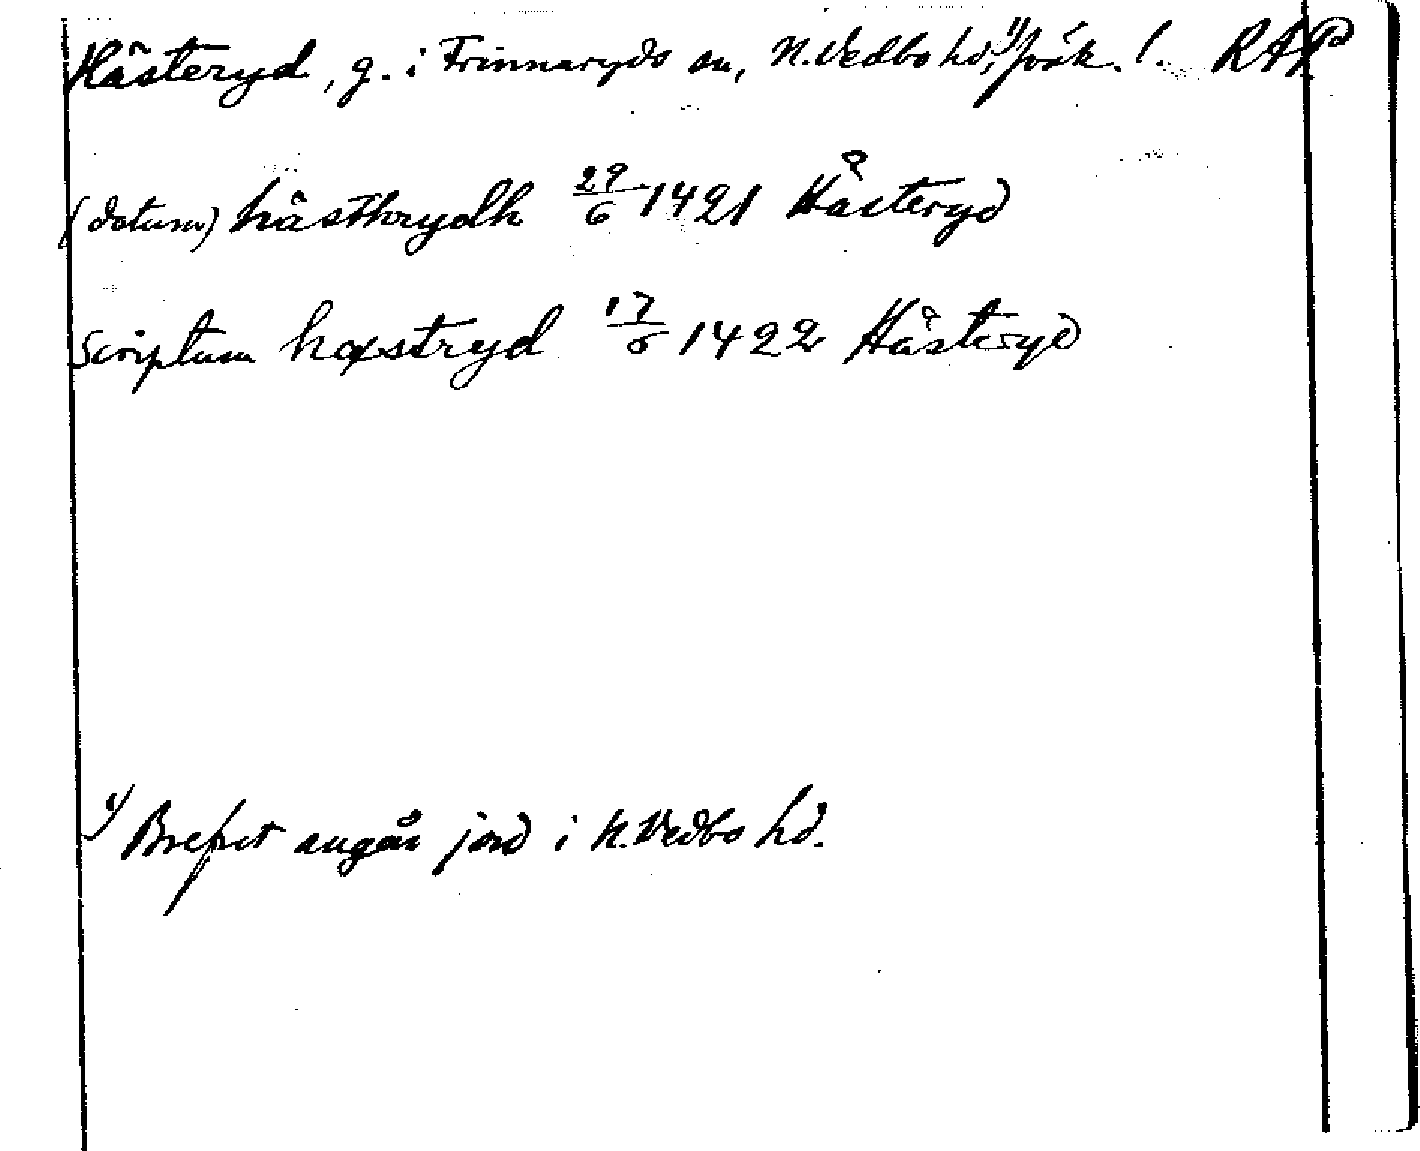 Hästeryd, g. i Frinnaryds sn, N. Vedbo hd,¹⁾ Jönk. l. RAP
(datum) hästhrydh 29/6 1421 Hästeryd
Scriptum hæstryd 17/8 1422 Hästeryd
¹⁾ Brefvet angår jord i N. Vedbo hd.